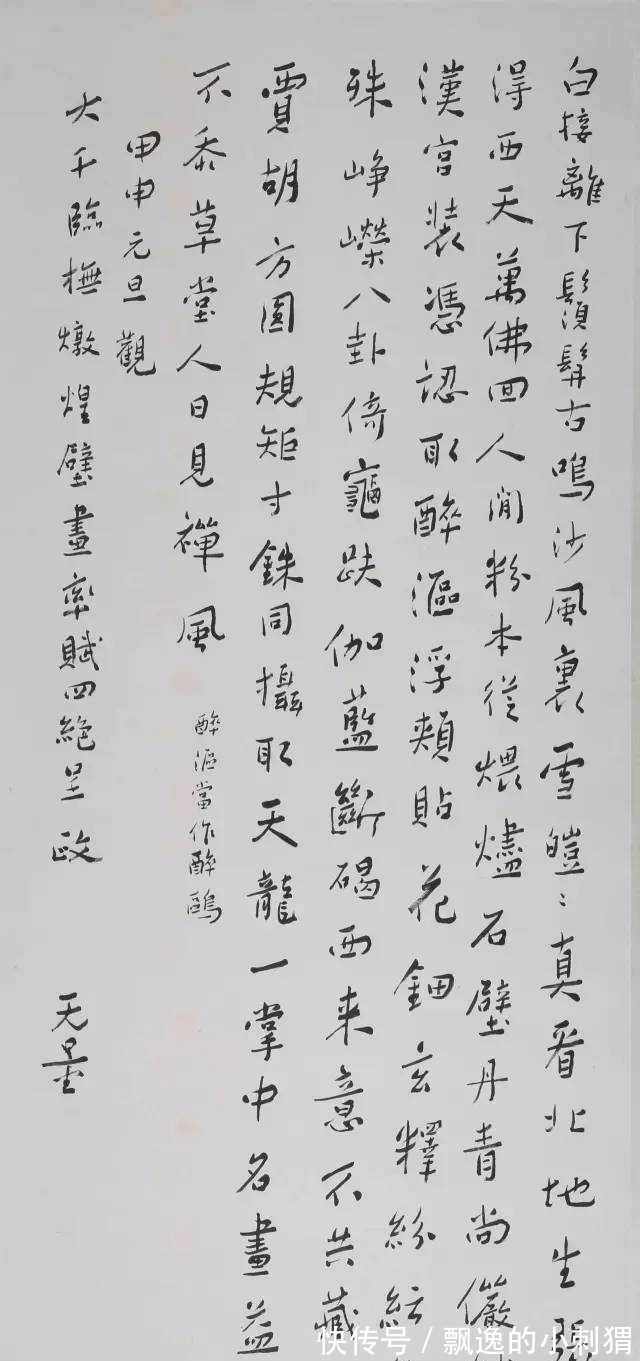 白接離下鬚髯古鳴沙風裏雪皚〻真看北地生張
淂西天萬佛回人間粉本從煨燼石壁丹青尚儼
漢宮裝憑認取醉漚浮頰貼花鈿玄釋紛紜
殊崢嶸八卦倚龜趺伽藍斷碣西来意不共藏
賈胡方圓規矩寸銖同攝取天龍一掌中名畫益
不黍草堂人日見禪風
醉漚當作醉鷗
甲申元旦觀
大千臨橅燉煌壁畫率賦四絶呈政
天
快传号/飘逸的小刺猬